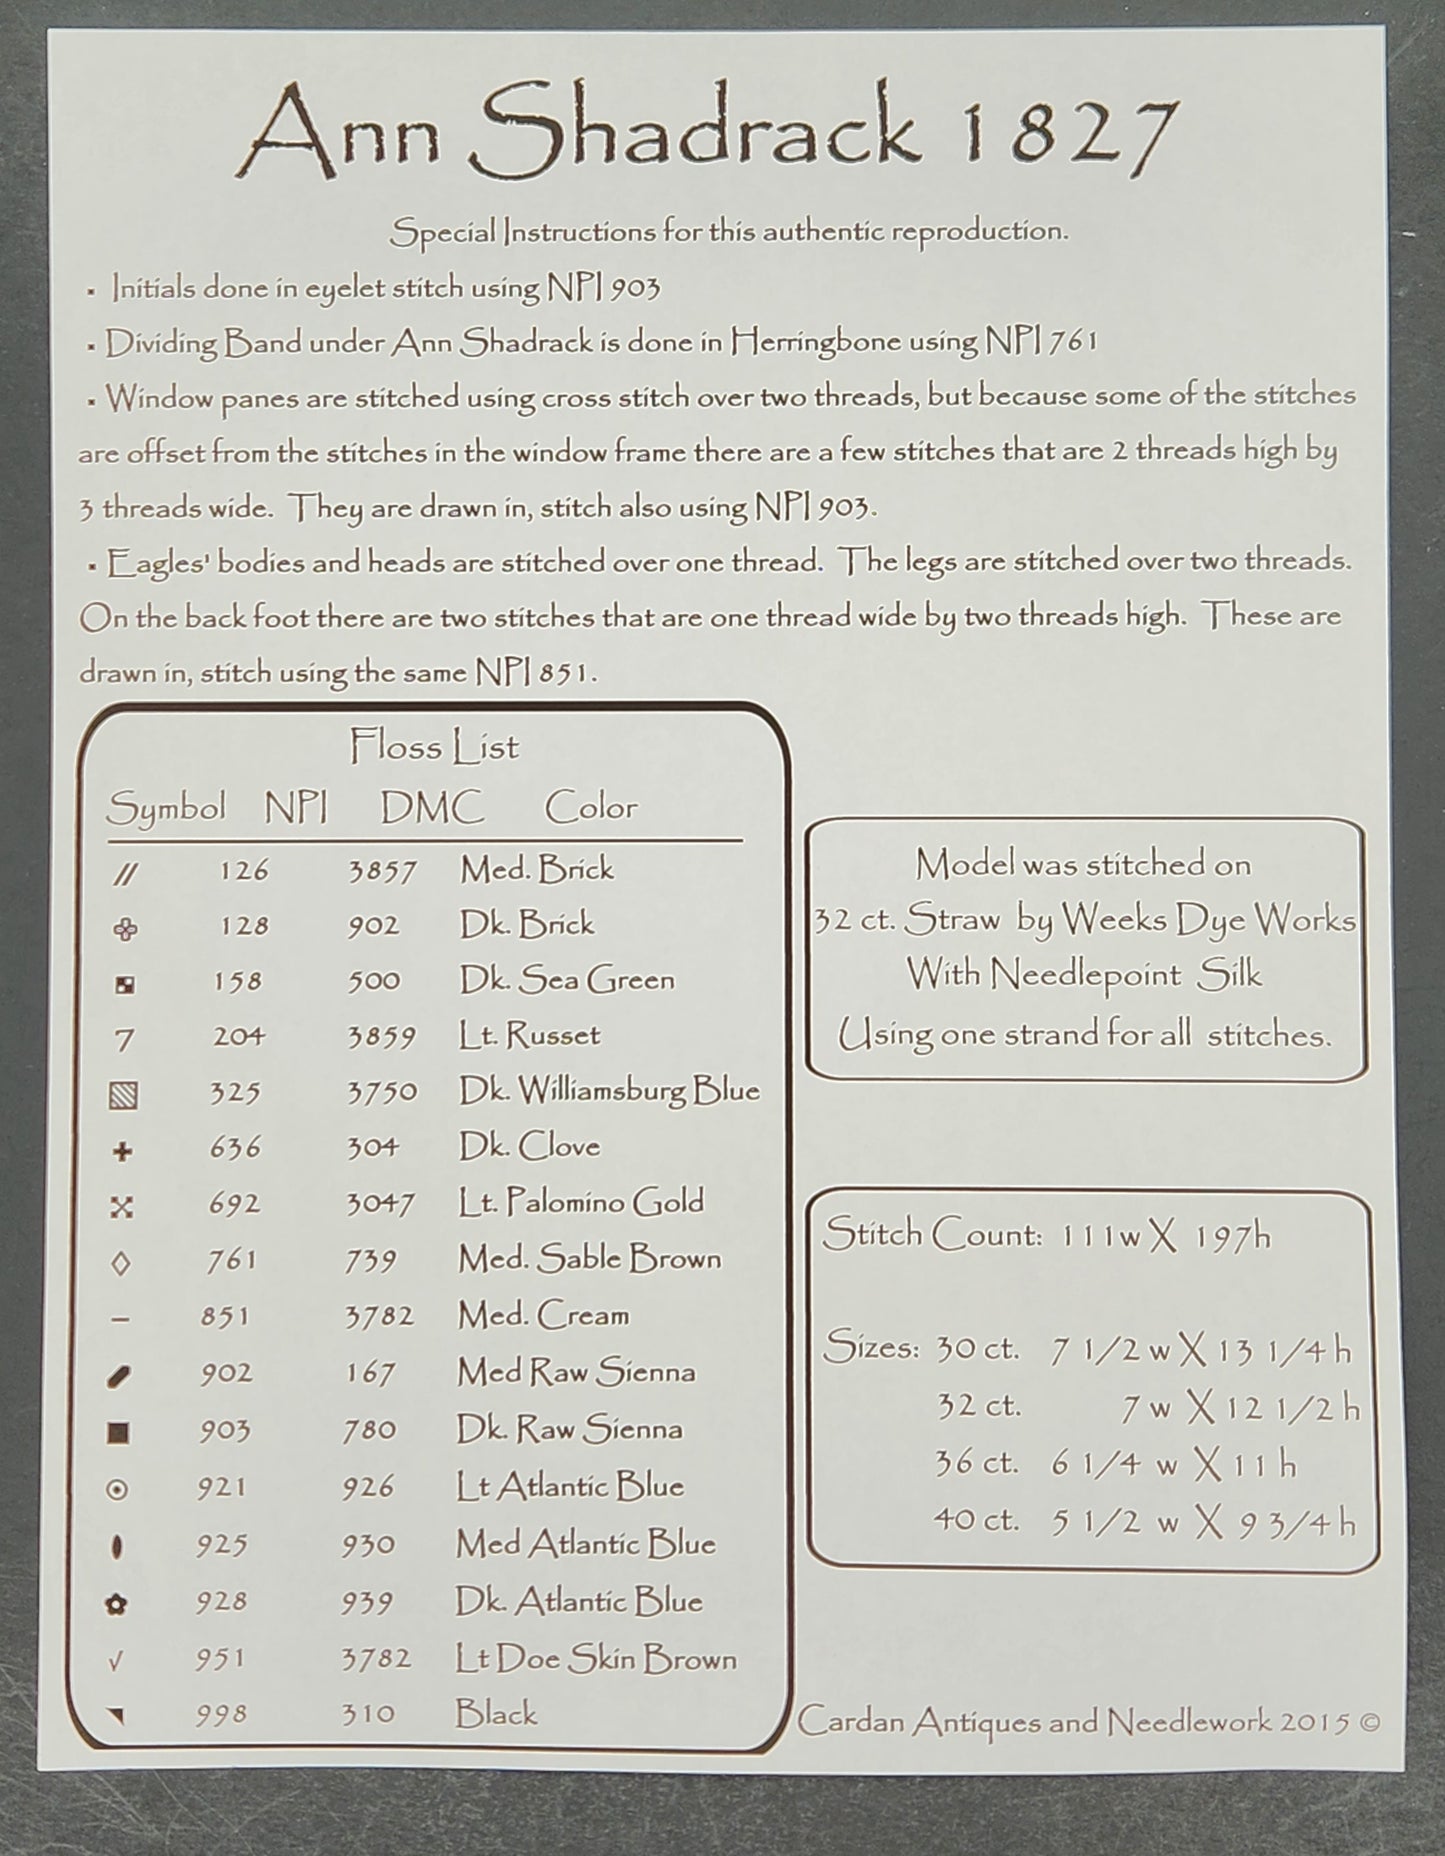 Ann Shadrack 1827
Special Instructions for this authentic reproduction.
· Initials done in eyelet stitch using NPI 903
· Dividing Band under Ann Shadrack is done in Herringbone using NPI 761
· Window panes are stitched using cross stitch over two threads, but because some of the stitches
are offset from the stitches in the window frame there are a few stitches that are 2 threads high by
3 threads wide. They are drawn in, stitch also using NPI 903.
· Eagles' bodies and heads are stitched over one thread. The legs are stitched over two threads.
On the back foot there are two stitches that are one thread wide by two threads high. These are
drawn in, stitch using the same NPI 851.
Floss List
Symbol NPI DMC Color
// 126 3857 Med. Brick
128 902 Dk. Brick
158 500 Dk. Sea Green
7 204 3859 Lt. Russet
325 3750 Dk. Williamsburg Blue
+ 636 304 Dk. Clove
692 3047 Lt. Palomino Gold
◇ 761 739 Med. Sable Brown
– 851 3782 Med. Cream
902 167 Med Raw Sienna
■ 903 780 Dk. Raw Sienna
⊙ 921 926 Lt Atlantic Blue
925 930 Med Atlantic Blue
928 939 Dk. Atlantic Blue
√ 951 3782 Lt Doe Skin Brown
998 310 Black
Model was stitched on
32 ct. Straw by Weeks Dye Works
With Needlepoint Silk
Using one strand for all stitches.
Stitch Count: 111w X 197h
Sizes: 30 ct. 7 1/2 w X 13 1/4 h
32 ct. 7 w X 12 1/2 h
36 ct. 6 1/4 w X 11 h
40 ct. 5 1/2 w X 9 3/4 h
Cardan Antiques and Needlework 2015 ©